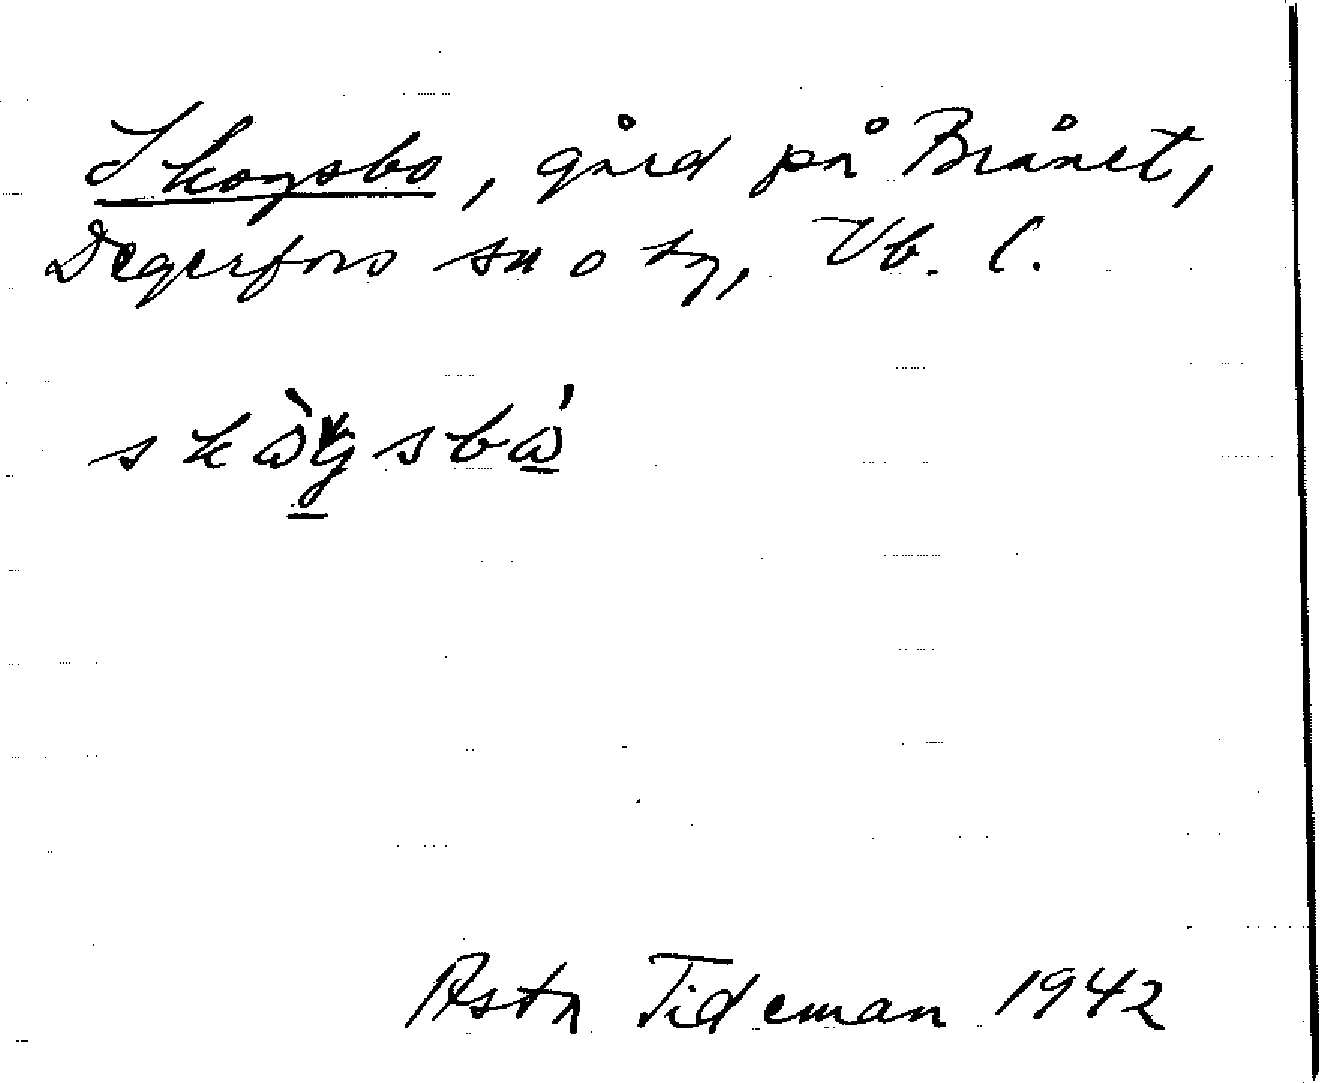 Skogsbo, gård på Brånet,
Degerfors sn o tg, Vb. l.
Asta Tideman 1942